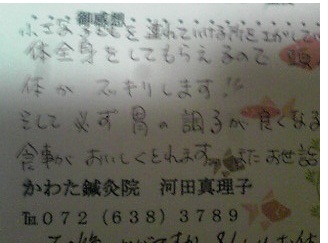 御感想
小さな子どもを連れて行ける所を
体全身をしてもらえるので
体がスッキリします!!
そして必ず胃の調子が良くなる
食事がおいしくとれます。また お世話
かわた鍼灸院 河田真理子
℡072(638)3789